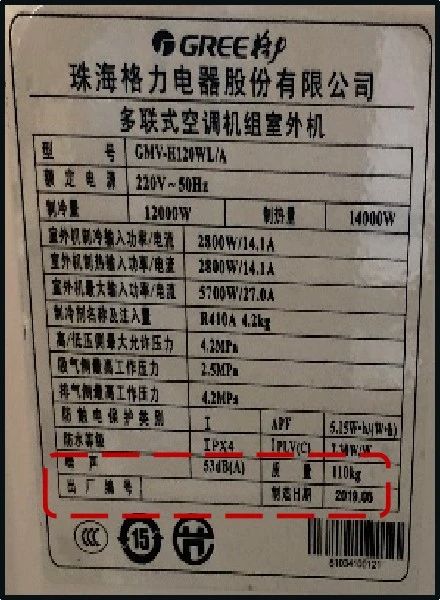 GREE格力
珠海格力电器股份有限公司
多联式空调机组室外机
型号 GMV-H120WL/A
额定电源 220V~50Hz
制冷量 12000W 制热量 14000W
室外机制冷输入功率/电流 2800W/14.1A
室外机制热输入功率/电流 2800W/14.1A
室外机最大输入功率/电流 5700W/27.0A
制冷剂名称及注入量 R410A 4.2kg
高/低压侧最大允许压力 4.2MPa
吸气侧最高工作压力 2.5MPa
排气侧最高工作压力 4.2MPa
防触电保护类别 I APF 5.15W·h/(W·h)
防水等级 IPX4 IPLV(C) W/W
噪声 53dB(A) 质量 110kg
出厂编号 制造日期
CCC 15